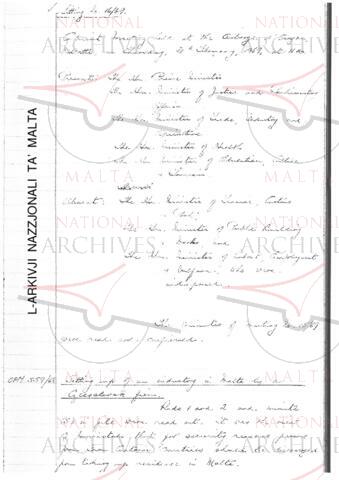 Sitting No. 16/69.
Cabinet meeting held at the Auberge d'Aragon
Valletta on Saturday, 1969, at
Present: The Hon. Prime Minister
The Hon. Minister of Justice and Parliamentary
Affairs
The Hon. Minister of Trade, Industry and
Agriculture
The Hon. Minister of Health
The Hon. Minister of Education, Culture
& Tourism
Absent: The Hon. Minister of Finance, Customs
& Port;
The Hon. Minister of Public Building
& Works, and
The Hon. Minister of Labour, Employment
& Welfare, who were
indisposed.
The minutes of meeting No. 15/69
were read and confirmed.
OPM
Setting up of an industry in Malta by a
firm.
Reds 1 and 2 and minute
in file were read out. It was the view
of Ministers that for security reasons persons
from countries should be discouraged
from taking up residence in Malta.
L-ARKIVJI NAZZJONALI TA' MALTA
NATIONAL
MALTA
ARCHIVES